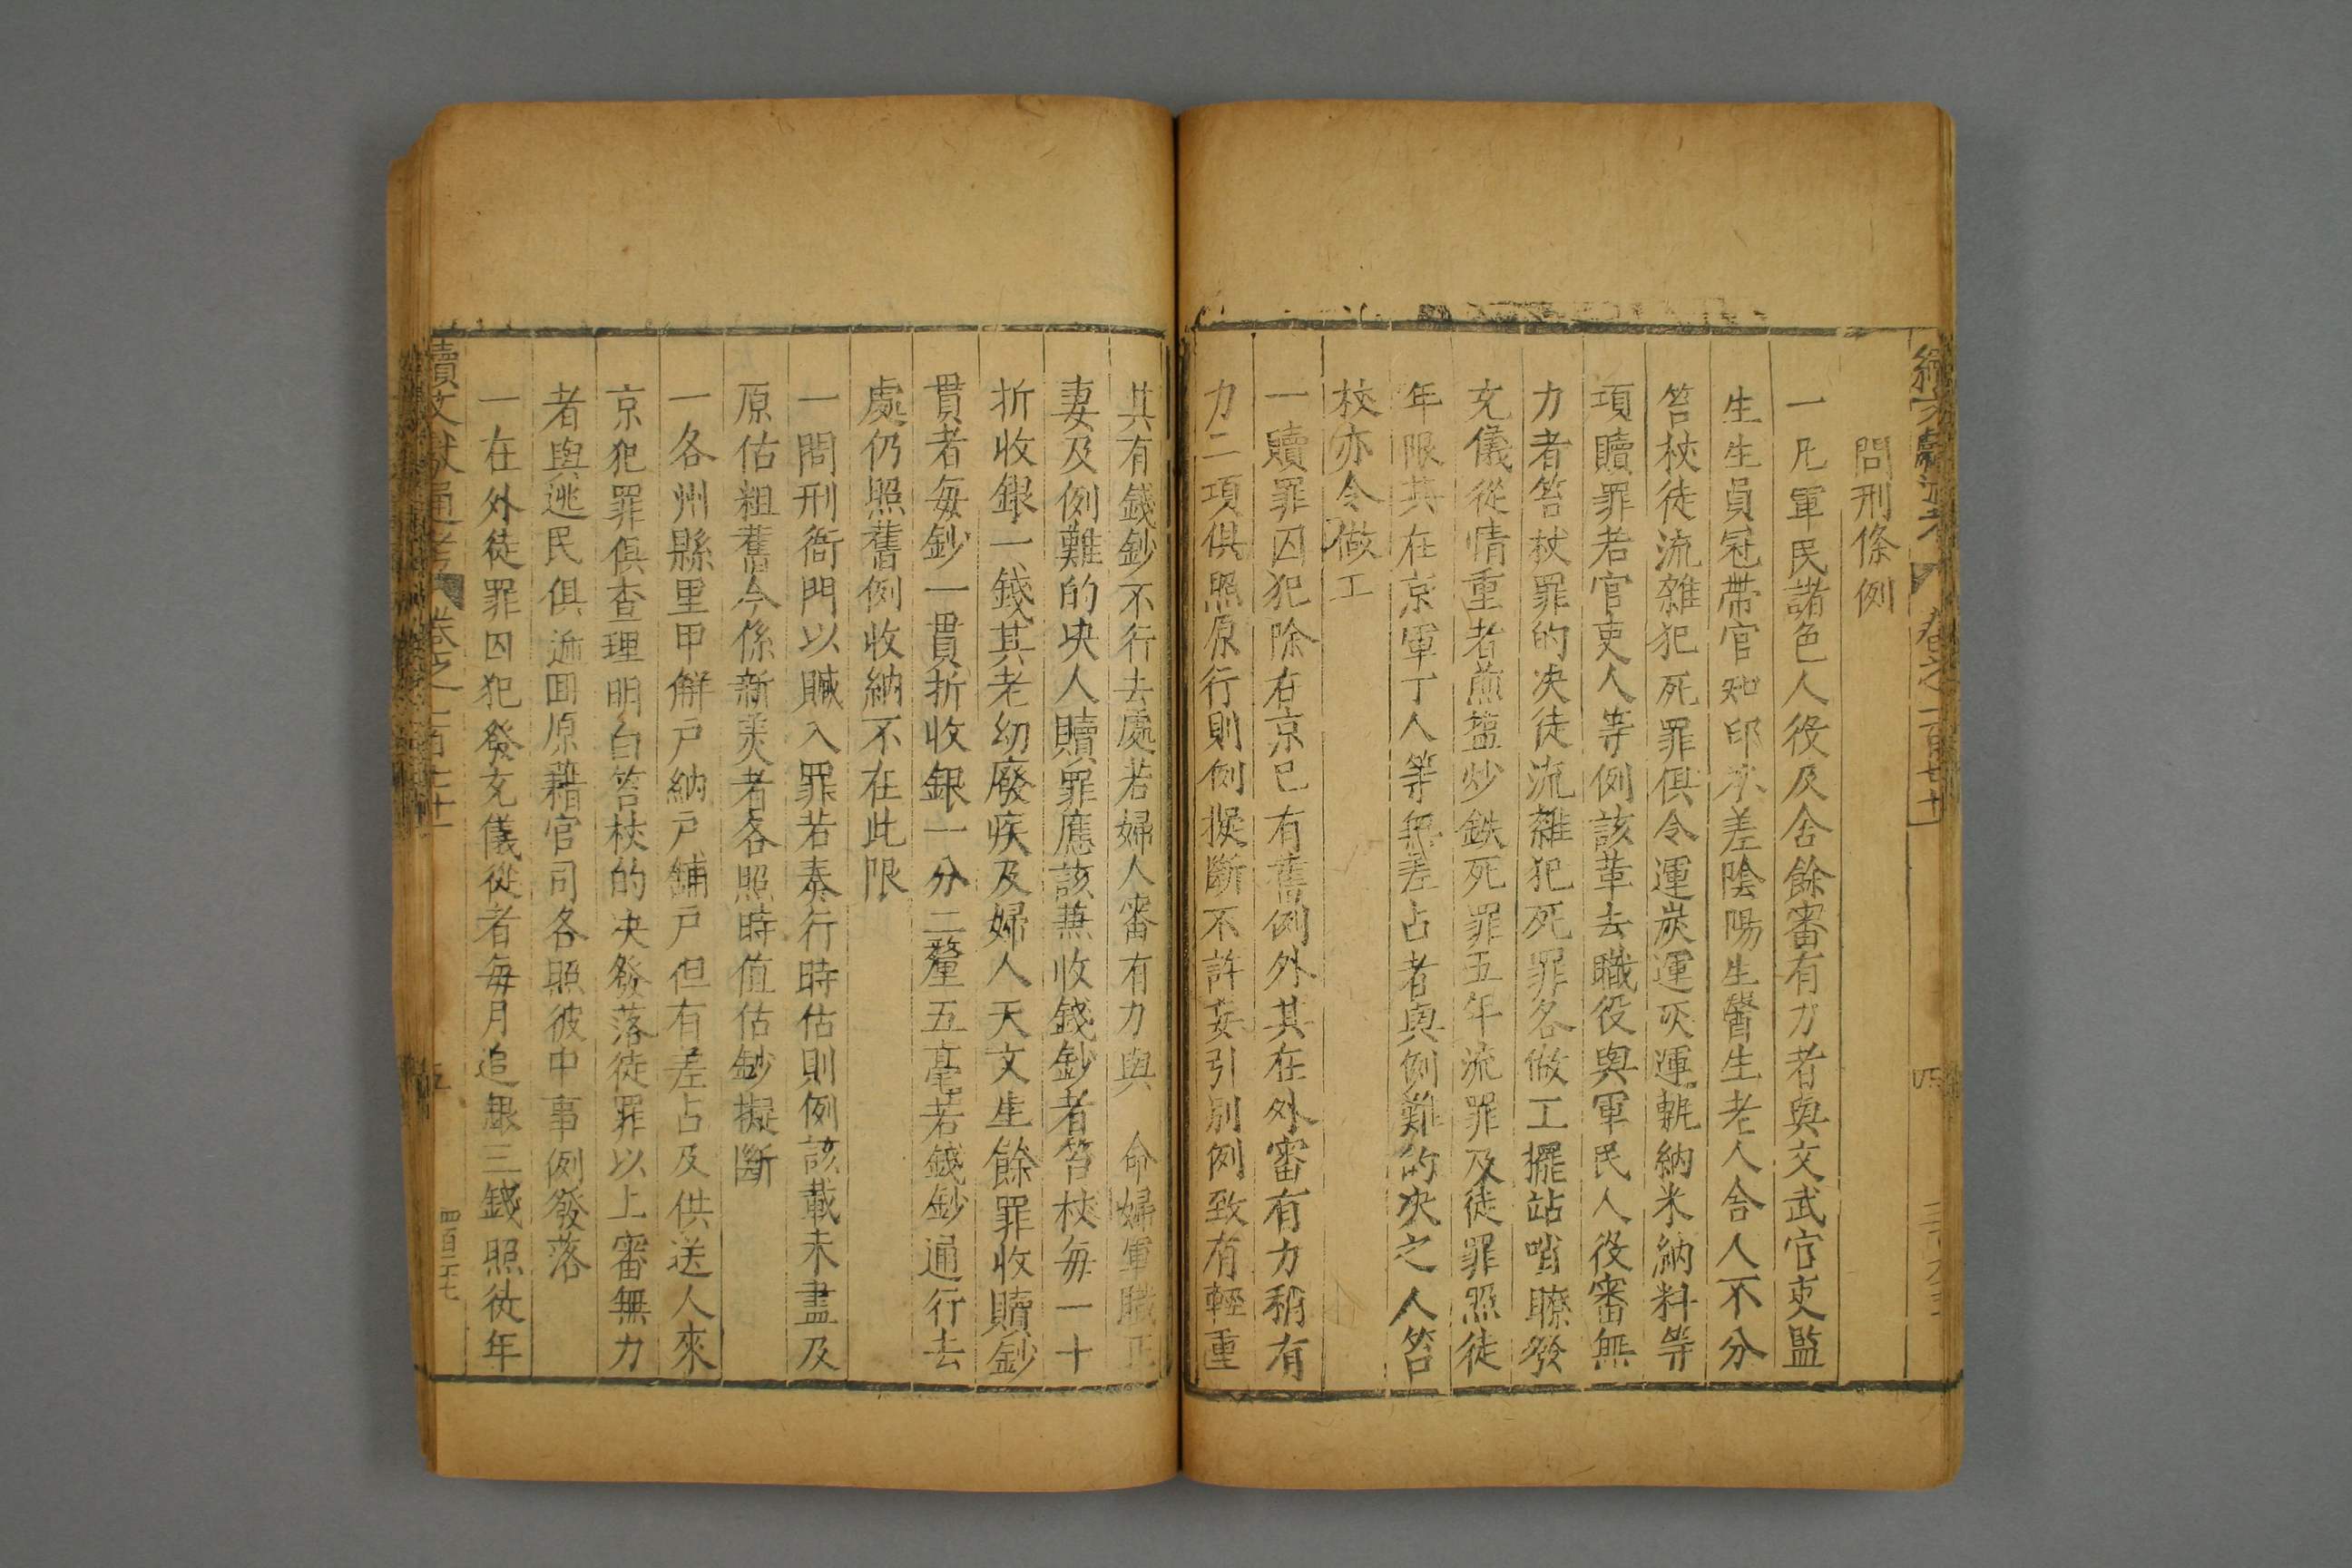 問刑條例
一凡軍民諸色人役及舍餘審有力者與文武官吏監
生生員冠帶官知印承差陰陽生醫生老人舍人不分
笞杖徒流雜犯死罪俱令運炭運灰運甎納米納料等
項贖罪若官吏人等例該革去職役與軍民人役審無
力者笞杖罪的决徒流雜犯死罪各做工擺站哨瞭發
充儀從情重者煎鹽炒鉄死罪五年流罪及徒罪照徒
年限其在京軍丁人等無差占者與例難的决之人笞
杖亦令做工
一贖罪囚犯除在京已有舊例外其在外審有力稍有
力二項俱照原行則例擬斷不許妄引别例致有輕重
其有錢鈔不行去處若婦人審有力與 命婦軍職正
妻及例難的决人贖罪應該兼收錢鈔者笞杖每一十
折收銀一錢其老幼廢疾及婦人天文生餘罪收贖鈔
貫者每鈔一貫折收銀一分二釐五毫若錢鈔通行去
處仍照舊例收納不在此限
一問刑衙門以贓入罪若奏行時估則例該載未盡及
原估粗舊今係新美者各照時值估鈔擬斷
一各州縣里甲解户納户舖户但有差占及供送人來
京犯罪俱查理明白笞杖的决發落徒罪以上審無力
者與逃民俱遞囬原籍官司各照彼中事例發落
一在外徒罪囚犯發充儀從者每月追銀三錢照徒年
續文獻通考 卷之一百七十 五